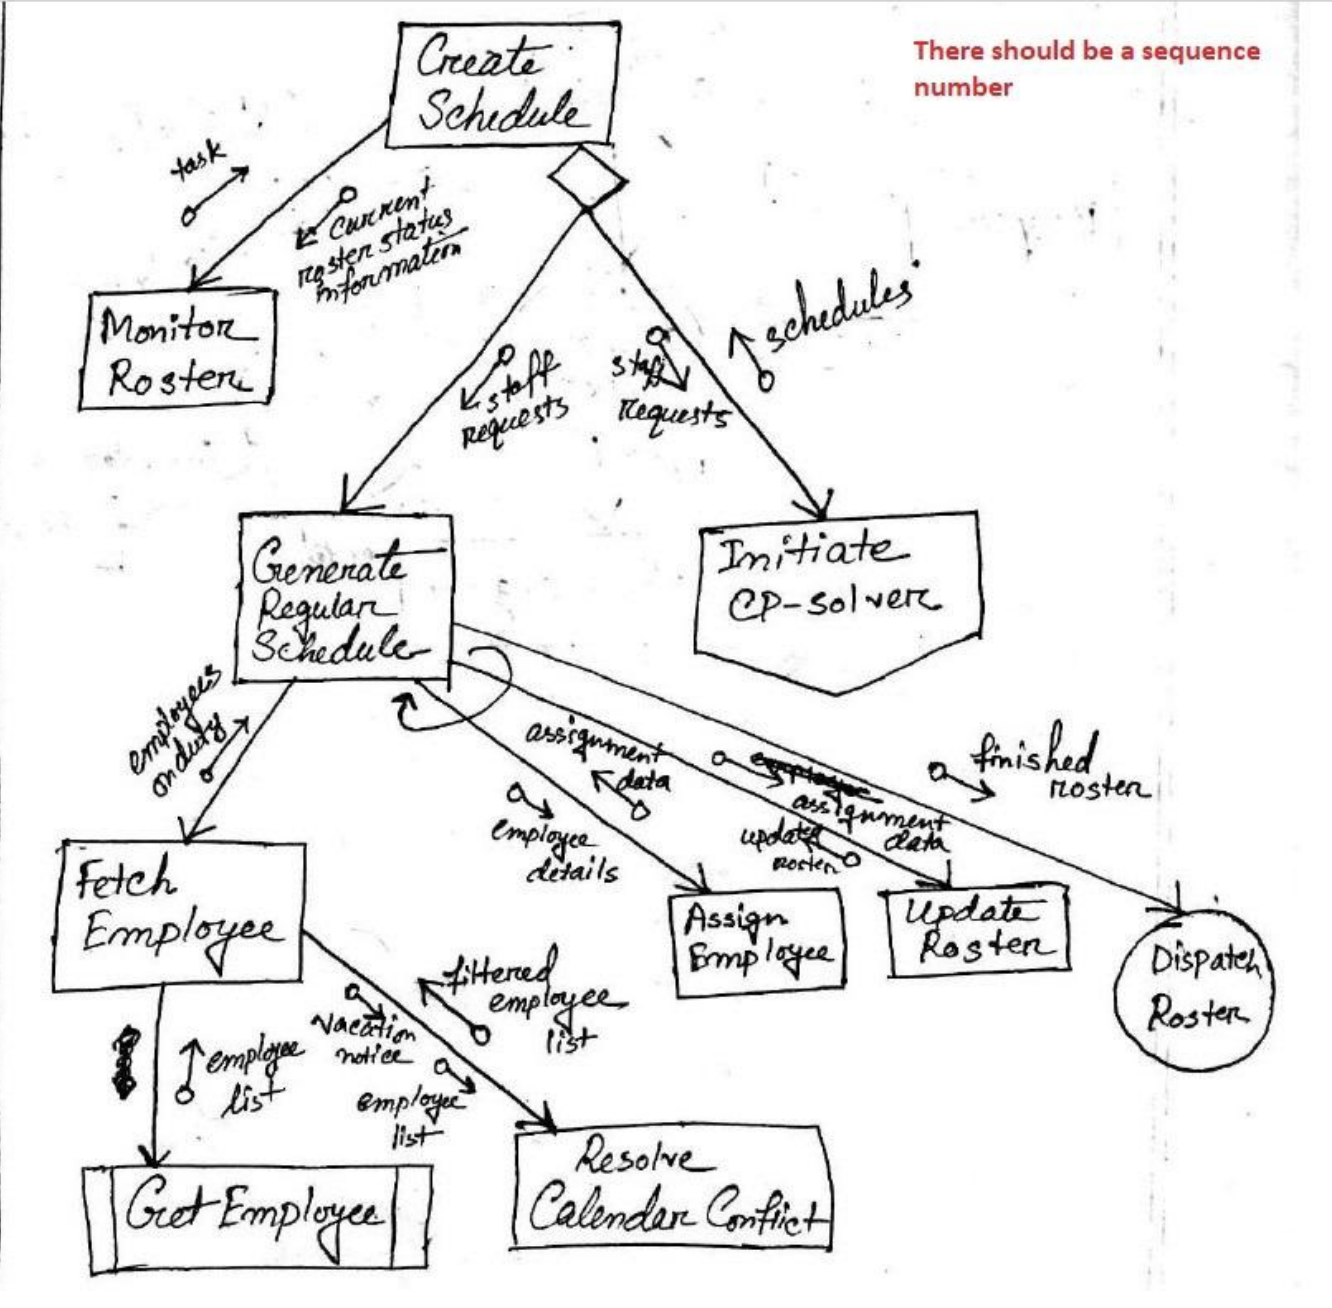 There should be a sequence
number
Create
Schedule
task
Current
roster status
information
Monitor
Roster
schedules
staff
requests
staff
requests
Generate
Regular
Schedule
Initiate
CP-solver
employees
on duty
assignment
data
employee
details
assignment
data
updated
roster
finished
roster
Fetch
Employee
Assign
Employee
Update
Roster
Dispatch
Roster
filtered
employee
list
vacation
notice
employee
list
employee
list
Get Employee
Resolve
Calendar Conflict